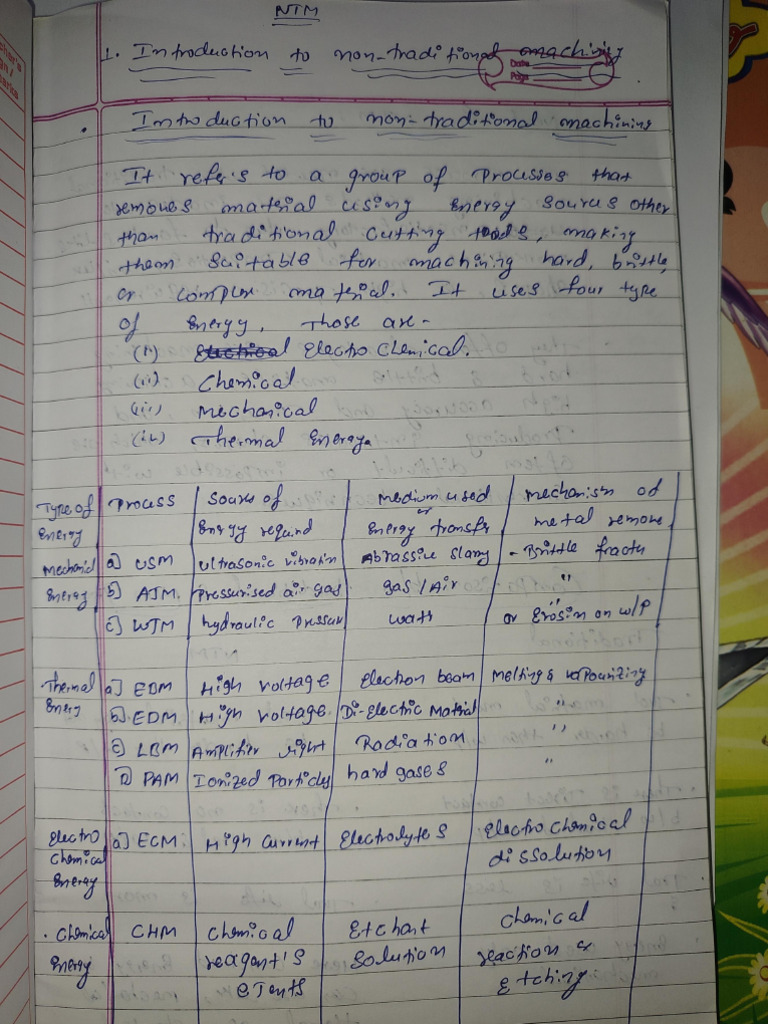 NTM
1. Introduction to non-traditional machining
Date
Page
• Introduction to non-traditional machining
It refers to a group of Processes that
removes material using energy sources other
than traditional cutting tools, making
them suitable for machining hard, brittle,
or complex material. It uses four type
of Energy, Those are-
(i) Electro Chemical.
(ii) Chemical
(iii) Mechanical
(iv) Thermal Energy.
Type of Energy | Process | Sources of Energy required | Medium used or Energy transfer | Mechanism of metal remove
Mechanicl Energy | a) USM | Ultrasonic vibration | Abrassive slurry | - Brittle fractu
b) AJM. | Pressurised air gas | gas / Air | "
c) WJM | hydraulic Pressur | Watt | or Erosin on W/P
Thermal Energy | a) EBM | High voltage | Electron beam | Melting & vapourizing
b) EDM | High voltage | Di-Electric Matrial | "
c) LBM | Amplifier light | Radiation | "
d) PAM | Ionized Particles | hard gases
Electro Chemical Energy | a) ECM: | High Current | Electrolytes | Electro chemical dissolution
. Chemical Energy | CHM | Chemical reagent's | Etchant Solution | Chemical reaction & Etching